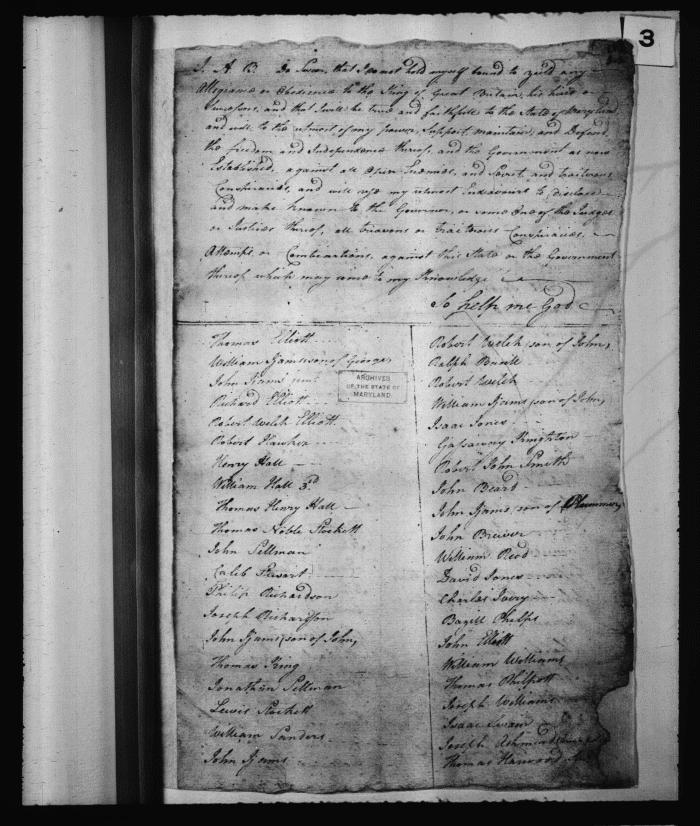 3
I. A. B. Do Swear, that I do not hold myself bound to yield any
Allegiance or Obedience to the King of Great Britain, his heirs or
Successors, and that I will be true and faithfull to the State of Maryland
and will to the utmost of my power, Support, maintain, and Defend,
the freedom and Independance thereof, and the Government as now
Established, against all Open Enemies, and Secret, and traiterous
Conspiracies, and will use my utmost Endeavours to Disclose
and make known to the Governor, or some One of the Judges
or Justices thereof, all treasons or traiterous Conspiracies,
Attempts, or Combinations, against this State or the Government
thereof which may come to my Knowledge
So help me God
Thomas Elliott
William Ijams son of George,
John Ijams
Richard Elliott
Robert Welch Elliott
Robert Hawker
Henry Hall
William Hall 3d
Thomas Henry Hall
Thomas Noble Stockett
John Sellman
Caleb Stewart
Philip Richardson
Joseph Richardson
John Ijams son of John,
Thomas King
Jonathan Sellman
Lewis Stockett
William Sanders
John Ijams
ARCHIVES
OF THE STATE OF
MARYLAND
Robert Welch son of John,
Ralph
Robert Welch
William Ijams son of John,
Isaac Jones
Gassaway Knighton
Robert John Smith
John Beard
John Ijams son of Plummer,
John Brewer
William Reed
David Jones
Charles
Bazill Phelps
John Elliott
William Williams
Thomas Philpott
Joseph Williams
Isaac Swain
Joseph Ashmead
Thomas Harwood